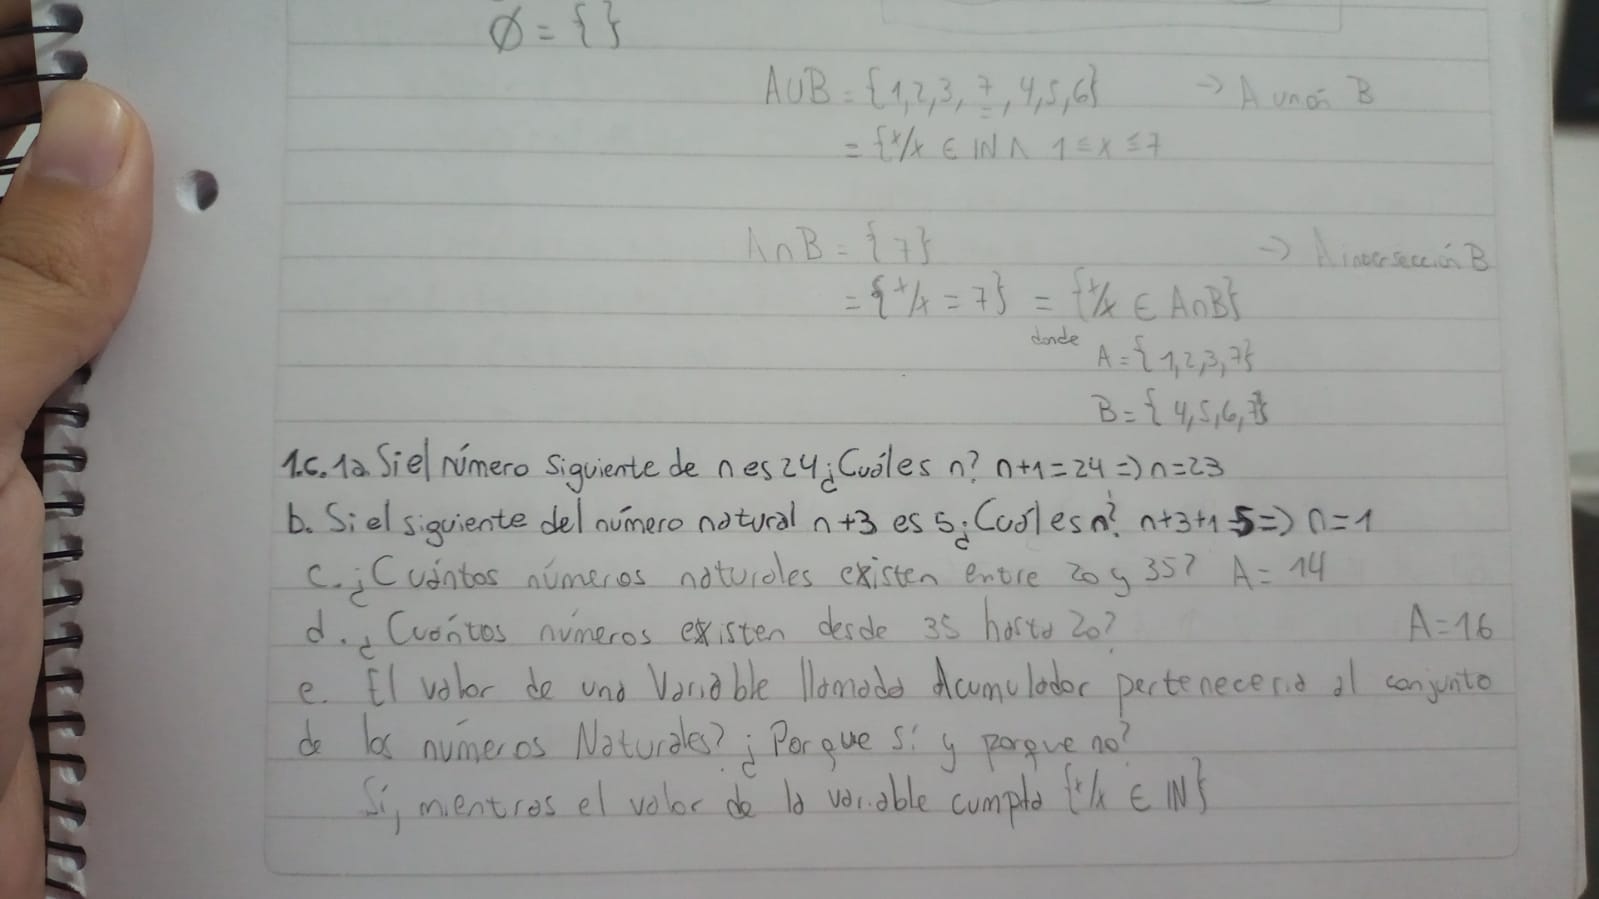 Ø = { }
A∪B = {1,2,3, 7, 4,5,6} → A unón B
= {x/x ∈ IN ∧ 1 ≤ x ≤ 7
A∩B = {7} → A intersección B
= {x/x = 7} = {x/x ∈ A∩B}
donde A = {1,2,3,7}
B = {4,5,6,7}
1.c. 1a. Si el número siguiente de n es 24 ¿Cuál es n? n+1=24 => n=23
b. Si el siguiente del número natural n+3 es 5 ¿Cuál es n? n+3+1=5 => n=1
c. ¿Cuántos números naturales existen entre 20 y 35? A = 14
d. ¿Cuántos números existen desde 35 hasta 20? A=16
e. El valor de una Variable llamada Acumulador pertenecería al conjunto
de los números Naturales? ¿Porque si y porque no?
Sí, mientras el valor de la variable cumpla {x/x ∈ IN}